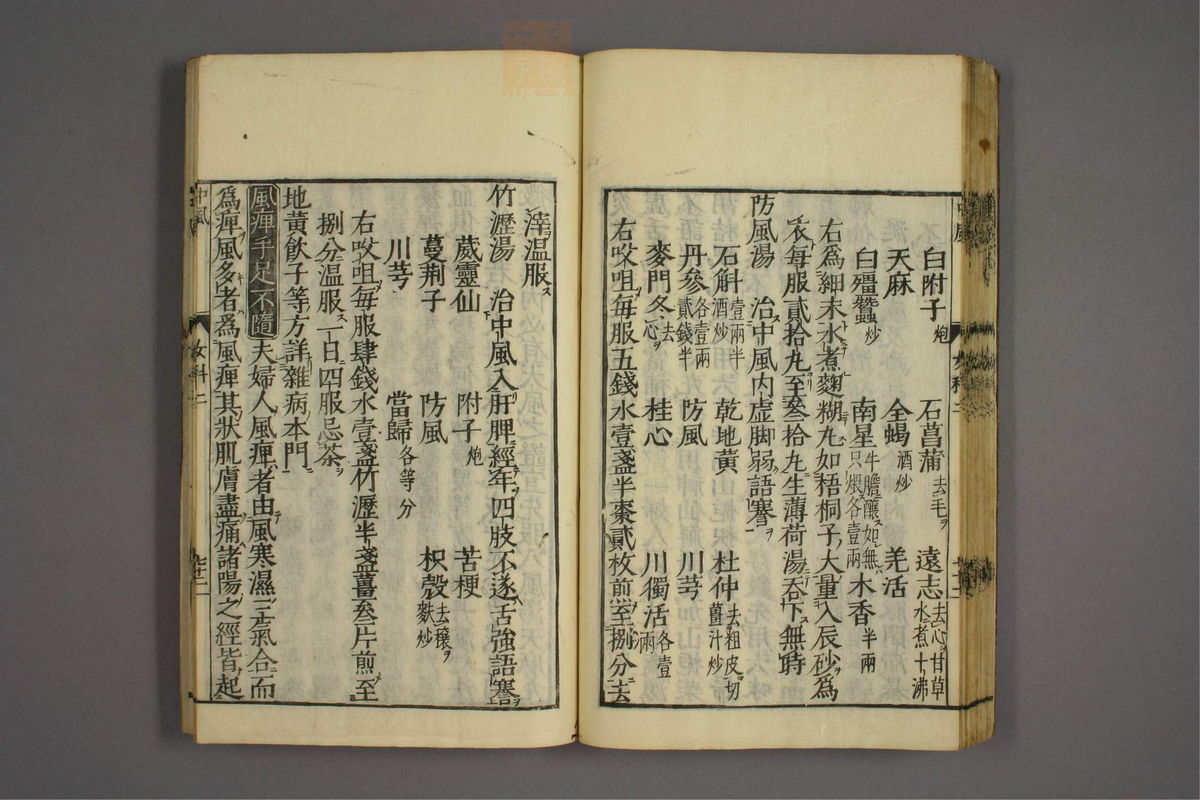 白附子炮　石菖蒲去毛　遠志去心甘草水煮十沸
天麻　全蝎酒炒　羌活
白殭蠶炒　南星牛膽釀如無只煨各壹兩　木香半兩
右爲細末水煮麵糊丸如梧桐子大量入辰砂爲
衣每服貳拾丸至叄拾丸生薄荷湯吞下無時
防風湯　治中風内虚脚弱語謇
石斛壹兩半酒炒　乾地黄　杜仲去粗皮切薑汁炒
丹參各壹兩貳錢半　防風　川芎
麥門冬去心　桂心　川獨活各壹兩
右㕮咀每服五錢水壹盞半棗貳枚煎至捌分去
滓温服
竹瀝湯　治中風入肝脾經年四肢不遂舌強語謇
葳靈仙　附子炮　苦梗
蔓荆子　防風　枳殼去穣麩炒
川芎　當歸各等分
右㕮咀每服肆錢水壹盞竹瀝半盞薑叄片煎至
捌分温服一日四服忌茶
地黄飲子等方詳雜病本門
風痺手足不隨　夫婦人風痺者由風寒濕三氣合而
爲痺風多者爲風痺其狀肌膚盡痛諸陽之經皆起
中風　女科二